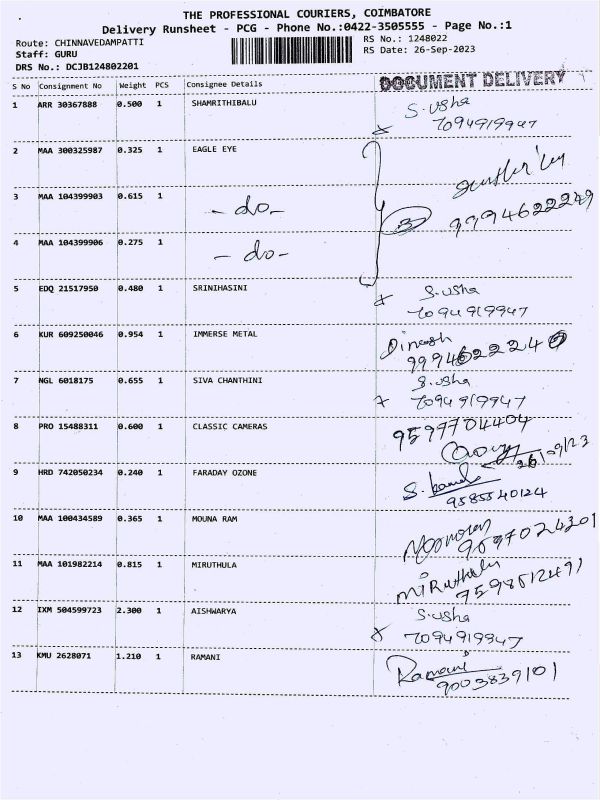 THE PROFESSIONAL COURIERS, COIMBATORE
Delivery Runsheet - PCG - Phone No.:0422-3505555 - Page No.:1
Route: CHINNAVEDAMPATTI
RS No.: 1248022
Staff: GURU
RS Date: 26-Sep-2023
DRS No.: DCJB124802201
S No Consignment No Weight PCS Consignee Details DOCUMENT DELIVERY
1 ARR 30367888 0.500 1 SHAMRITHIBALU S. usha
7094919947
2 MAA 300325987 0.325 1 EAGLE EYE
3 MAA 104399903 0.615 1 - do - 3 9994622249
4 MAA 104399906 0.275 1 - do -
5 EDQ 21517950 0.480 1 SRINIHASINI S. usha
7094919947
6 KUR 609250046 0.954 1 IMMERSE METAL Dinesh
7 NGL 6018175 0.655 1 SIVA CHANTHINI S. usha
7094919947
8 PRO 15488311 0.600 1 CLASSIC CAMERAS 9597704404
26/09/23
9 HRD 742050234 0.240 1 FARADAY OZONE
9585540124
10 MAA 100434589 0.365 1 MOUNA RAM
9697024301
11 MAA 101982214 0.815 1 MIRUTHULA MiRuthula
7598512491
12 IXM 504599723 2.300 1 AISHWARYA S. usha
7094919947
13 KMU 2628071 1.210 1 RAMANI Ramani
9003839101